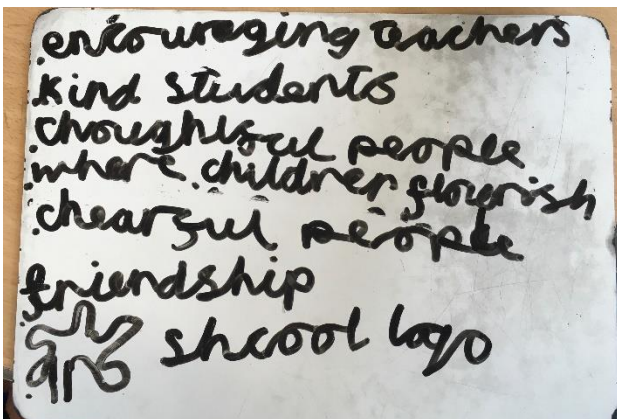 .encouraging teachers
.kind students
.thoughtful people
.where children flourish
.chearful people
.friendship
shcool logo